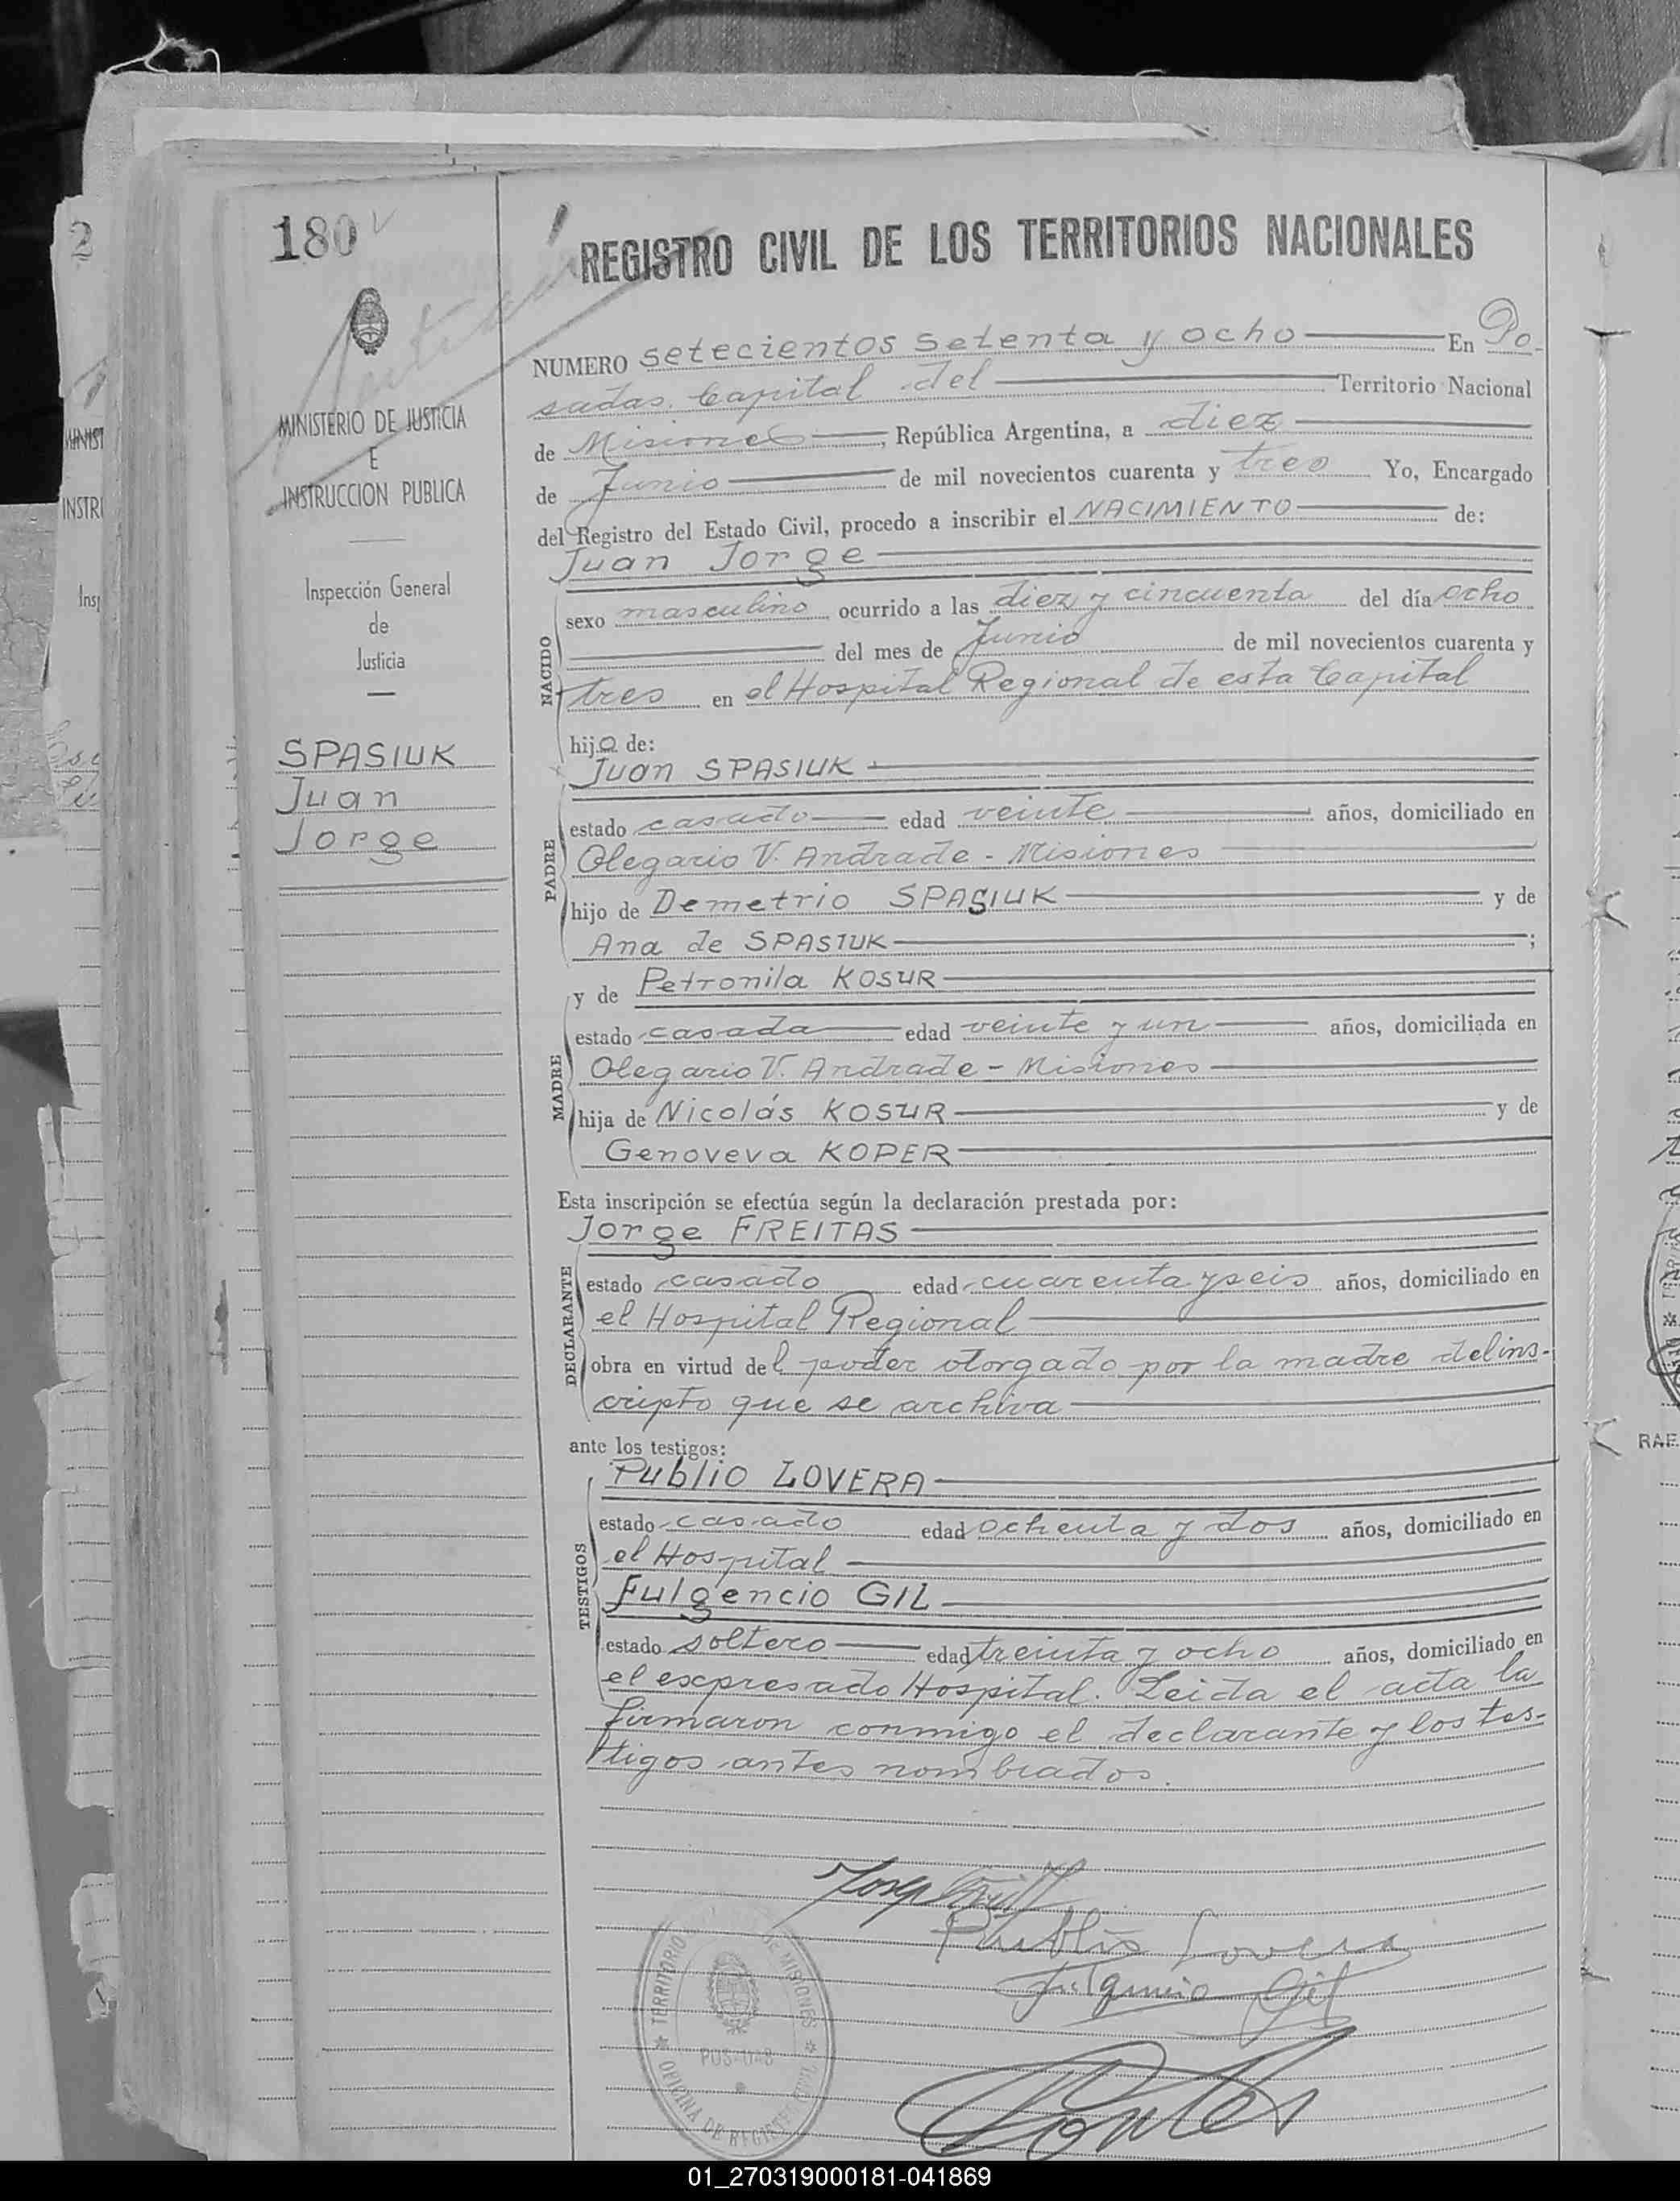 180
REGISTRO CIVIL DE LOS TERRITORIOS NACIONALES
MINISTERIO DE JUSTICIA
E
INSTRUCCION PUBLICA
Inspección General
de
Justicia
SPASIUK
Juan
Jorge
NUMERO setecientos setenta y ocho En Po-
sadas. Capital del Territorio Nacional
de Misiones, República Argentina, a diez
de Junio de mil novecientos cuarenta y tres Yo, Encargado
del Registro del Estado Civil, procedo a inscribir el NACIMIENTO de:
Juan Jorge
NACIDO
sexo masculino ocurrido a las diez y cincuenta del día ocho
del mes de Junio de mil novecientos cuarenta y
tres en el Hospital Regional de esta Capital
hijo de:
Juan SPASIUK
PADRE
estado casado edad veinte años, domiciliado en
Olegario V. Andrade - Misiones
hijo de Demetrio SPASIUK y de
Ana de SPASIUK;
y de Petronila KOSUR
MADRE
estado casada edad veinte y un años, domiciliada en
Olegario V. Andrade - Misiones
hija de Nicolás KOSUR y de
Genoveva KOPER
Esta inscripción se efectúa según la declaración prestada por:
Jorge FREITAS
DECLARANTE
estado casado edad cuarenta y seis años, domiciliado en
el Hospital Regional
obra en virtud del poder otorgado por la madre del ins-
cripto que se archiva
ante los testigos:
Publio LOVERA
TESTIGOS
estado casado edad ochenta y dos años, domiciliado en
el Hospital
Fulgencio GIL
estado soltero edad treinta y ocho años, domiciliado en
el expresado Hospital. Leida el acta la
firmaron conmigo el declarante y los tes-
tigos antes nombrados.
Publio Lovera
Fulgencio Gil
TERRITORIO DE MISIONES
POSADAS
OFICINA DE REGISTRO
RAE
01_270319000181-041869